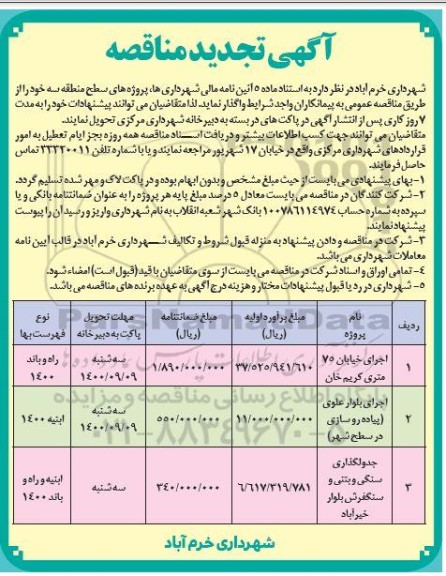 آگهی تجدید مناقصه
شهرداری خرم آباد در نظر دارد به استناد ماده ۵ آئین نامه مالی شهرداری ها، پروژه های سطح منطقه سه خود را از
طریق مناقصه عمومی به پیمانکاران واجد شرایط واگذار نماید. لذا متقاضیان می توانند پیشنهادات خود را به مدت
۷ روز کاری پس از انتشار آگهی در پاکت های در بسته به دبیرخانه شهرداری مرکزی تحویل نمایند.
متقاضیان می توانند جهت کسب اطلاعات بیشتر و دریافت اسناد مناقصه همه روزه بجز ایام تعطیل به امور
قراردادهای شهرداری مرکزی واقع در خیابان ۱۷ شهریور مراجعه نمایند و یا با شماره تلفن ۳۳۳۲۰۰۱۱ تماس
حاصل فرمایند.
۱- بهای پیشنهادی می بایست از حیث مبلغ مشخص و بدون ابهام بوده و در پاکت لاک و مهر شده تسلیم گردد.
۲- شرکت کنندگان در مناقصه می بایست معادل ۵ درصد مبلغ پایه هر پروژه را به عنوان ضمانتنامه بانکی و یا
سپرده به شماره حساب ۱۰۰۷۸۶۱۱۴۹۷۴ بانک شهر شعبه انقلاب به نام شهرداری واریز و رسید آن را پیوست
پیشنهاد نمایند.
۳- شرکت در مناقصه و دادن پیشنهاد به منزله قبول شروط و تکالیف شهرداری خرم آباد در قالب آیین نامه
معاملات شهرداری می باشد.
۴- تمامی اوراق و اسناد شرکت در مناقصه می بایست از سوی متقاضیان با قید (قبول است) امضاء شود.
۵- شهرداری در رد یا قبول پیشنهادات مختار و هزینه درج آگهی به عهده برنده های مناقصه می باشد.
ردیف نام پروژه مبلغ برآورد اولیه (ریال) مبلغ ضمانتنامه (ریال) مهلت تحویل پاکت به دبیرخانه نوع فهرست بها
۱ اجرای خیابان ۷۵ متری کریم خان ۳۷/۵۲۵/۹۴۱/۶۱۰ ۱/۸۹۰/۰۰۰/۰۰۰ سه شنبه ۱۴۰۰/۰۹/۰۹ راه و باند ۱۴۰۰
۲ اجرای بلوار علوی (پیاده رو سازی در سطح شهر) ۱۱/۰۰۰/۰۰۰/۰۰۰ ۵۵۰/۰۰۰/۰۰۰ سه شنبه ۱۴۰۰/۰۹/۰۹ ابنیه ۱۴۰۰
۳ جدولگذاری سنگی و بتنی و سنگفرش بلوار خیرآباد ۶/۶۱۷/۳۱۹/۷۸۱ ۳۴۰/۰۰۰/۰۰۰ سه شنبه ابنیه و راه و باند ۱۴۰۰
شهرداری خرم آباد